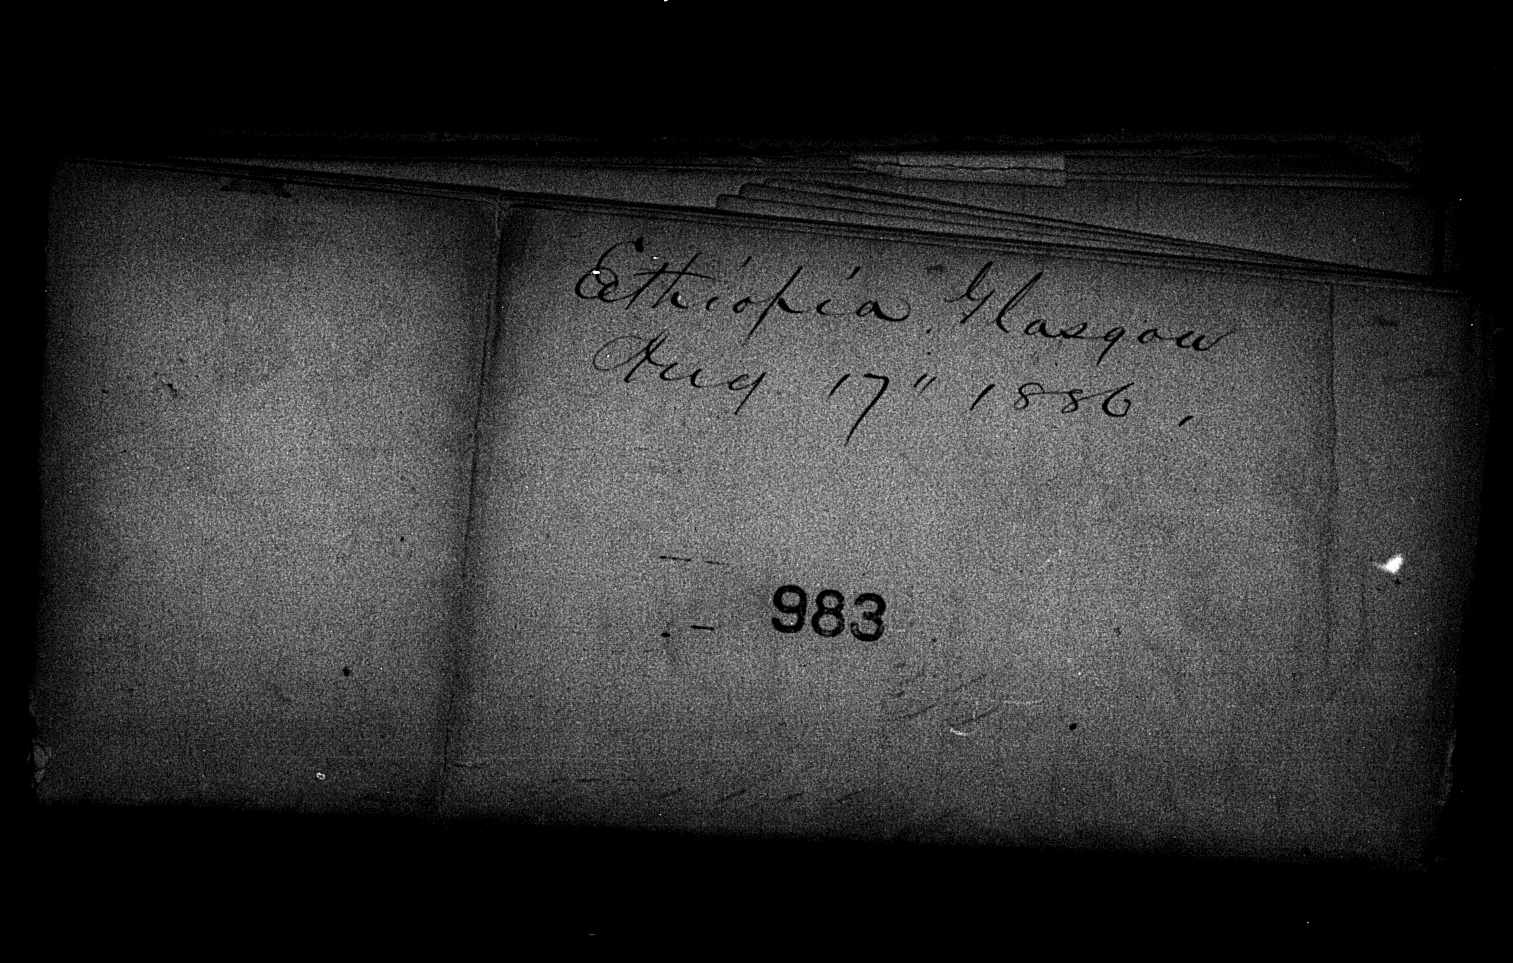 Ethiopia. Glasgow
Aug 17" 1886.
983